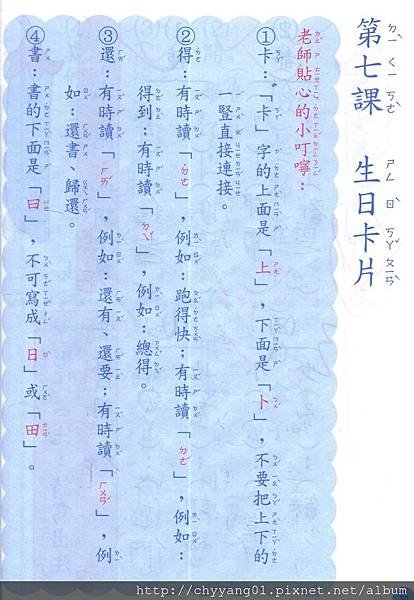 第七課 生日卡片
老師貼心的小叮嚀：
①卡：「卡」字的上面是「上」，下面是「卜」，不要把上下的
一豎直接連接。
②得：有時讀「˙ㄉㄜ」，例如：跑得快；有時讀「ㄉㄜˊ」，例如：
得到；有時讀「ㄉㄟˇ」，例如：總得。
③還：有時讀「ㄏㄞˊ」，例如：還有、還要；有時讀「ㄏㄨㄢˊ」，例
如：還書、歸還。
④書：書的下面是「曰」，不可寫成「日」或「田」。
http://chyyang01.pixnet.net/album